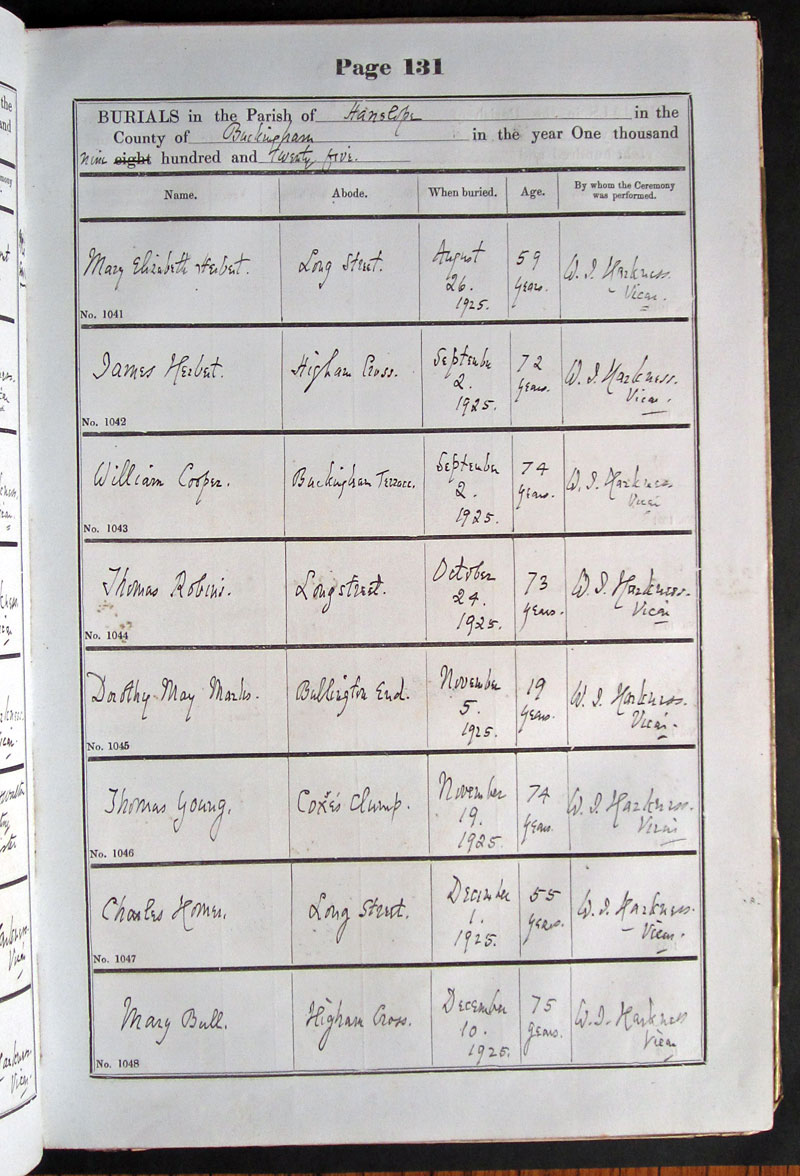 Page 131
BURIALS in the Parish of Hanslope in the
County of Buckingham in the year One thousand
nine eight hundred and twenty five.
Name. Abode. When buried. Age. By whom the Ceremony
was performed.
Mary Elizabeth Herbert. Long Street. August 26. 1925. 59 years. W. J. Harkness. Vicar.
No. 1041
James Herbert. Higham Cross. September 2. 1925. 72 years. W. J. Harkness. Vicar.
No. 1042
William Cooper. Buckingham Terrace. September 2. 1925. 74 years. W. J. Harkness Vicar
No. 1043
Thomas Robins. Longstreet. October 24. 1925. 73 years. W. J. Harkness. Vicar
No. 1044
Dorothy May Marks. Bullington End. November 5. 1925. 19 years. W. J. Harkness. Vicar.
No. 1045
Thomas Young. Coxe's Clump. November 19. 1925. 74 years. W. J. Harkness. Vicar
No. 1046
Charles Homer. Long Street. December 1. 1925. 55 years. W. J. Harkness. Vicar.
No. 1047
Mary Bull. Higham Cross. December 10. 1925. 75 years. W. J. Harkness Vicar
No. 1048